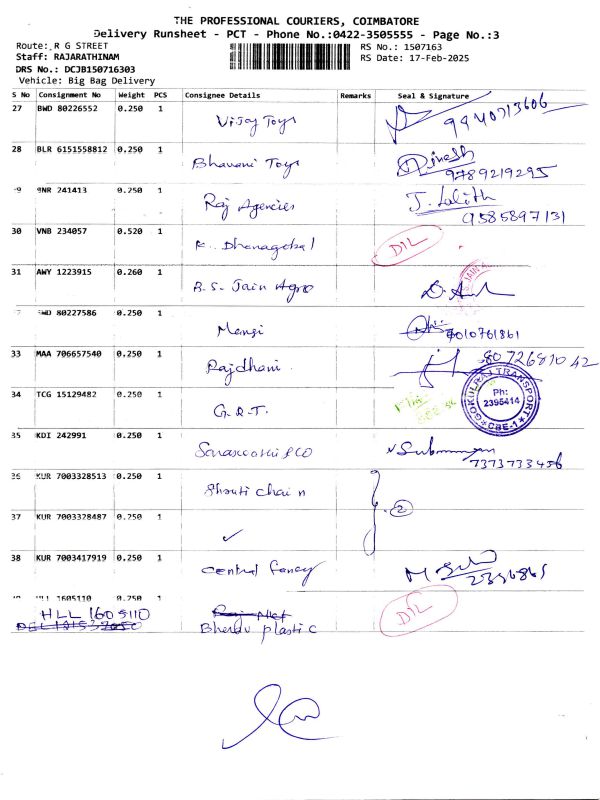 THE PROFESSIONAL COURIERS, COIMBATORE
Delivery Runsheet - PCT - Phone No.:0422-3505555 - Page No.:3
Route: R G STREET
RS No.: 1507163
Staff: RAJARATHINAM
RS Date: 17-Feb-2025
DRS No.: DCJB150716303
Vehicle: Big Bag Delivery
S No Consignment No Weight PCS Consignee Details Remarks Seal & Signature
27 BWD 80226552 0.250 1 Vijay Toys 9940713606
28 BLR 6151558812 0.250 1 Bhavani Toys Dinesh
9789219295
GNR 241413 0.250 1 Raj Agencies J. Lalith
9585897131
30 VNB 234057 0.520 1 K. Dhanagopal D/L
31 AWY 1223915 0.260 1 B.S. Jain Agro
BWD 80227586 0.250 1 7010761861
33 MAA 706657540 0.250 1 Rajdhani 8072681042
34 TCG 15129482 0.250 1 G.R.T. GOKULRAJ TRANSPORT
Ph:
2395414
CBE-1
35 KDI 242991 0.250 1 N Subramanyan
7373733456
KUR 7003328513 0.250 1 Shruti chain
2
37 KUR 7003328487 0.250 1 ✓
38 KUR 7003417919 0.250 1 Central fancy
HLL 1605110 0.250 1
HLL 1605110 D/L
plastic